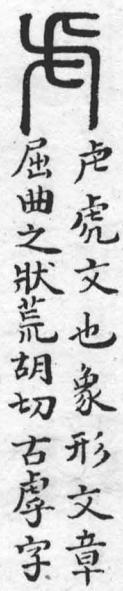 虍虎文也象形文章
屈曲之狀荒胡切古虖字